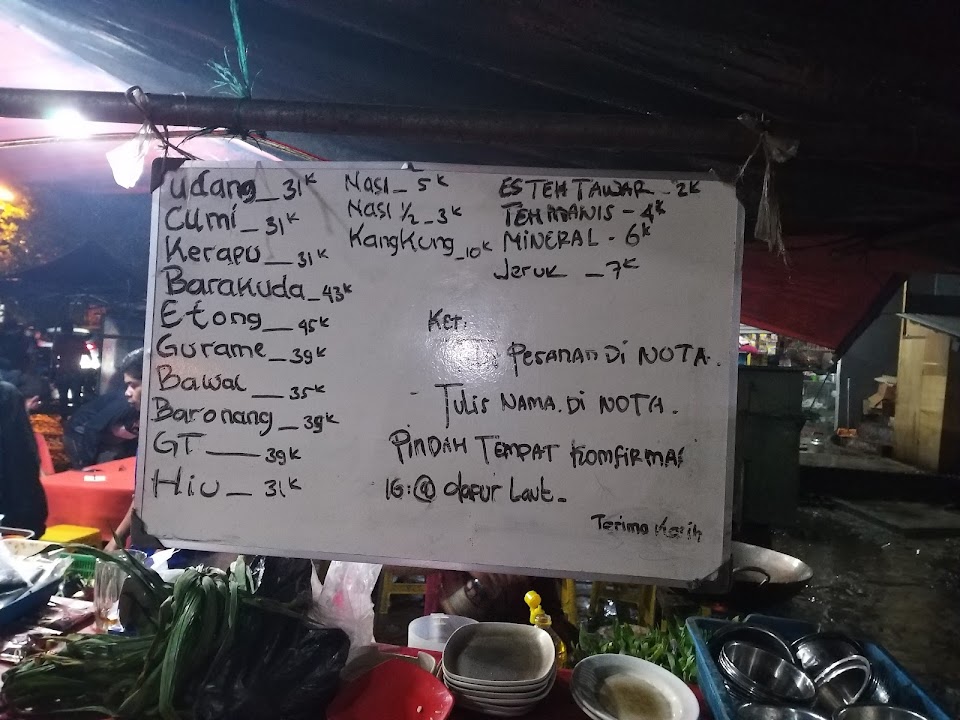 udang_31K
Cumi_31K
Kerapu_31K
Barakuda_43K
Etong_45K
Gurame_39K
Bawal_35K
Baronang_39K
GT_39K
Hiu_31K
Nasi_5K
Nasi 1/2_3K
Kangkung_10K
ES TEH TAWAR - 2K
TEH MANIS - 4K
MINERAL - 6K
Jeruk - 7K
Ket.
PESANAN Di NOTA.
- TULIS NAMA. Di NOTA.
PINDAH TEMPAT KOMFIRMASI
IG:@ dapur Laut_
Terima Kasih